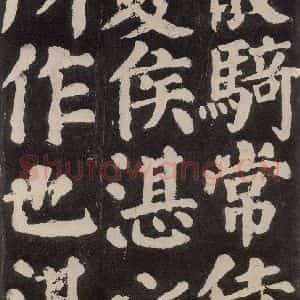 散騎常侍
夏侯湛之
所作也湛
Shufawang.cn